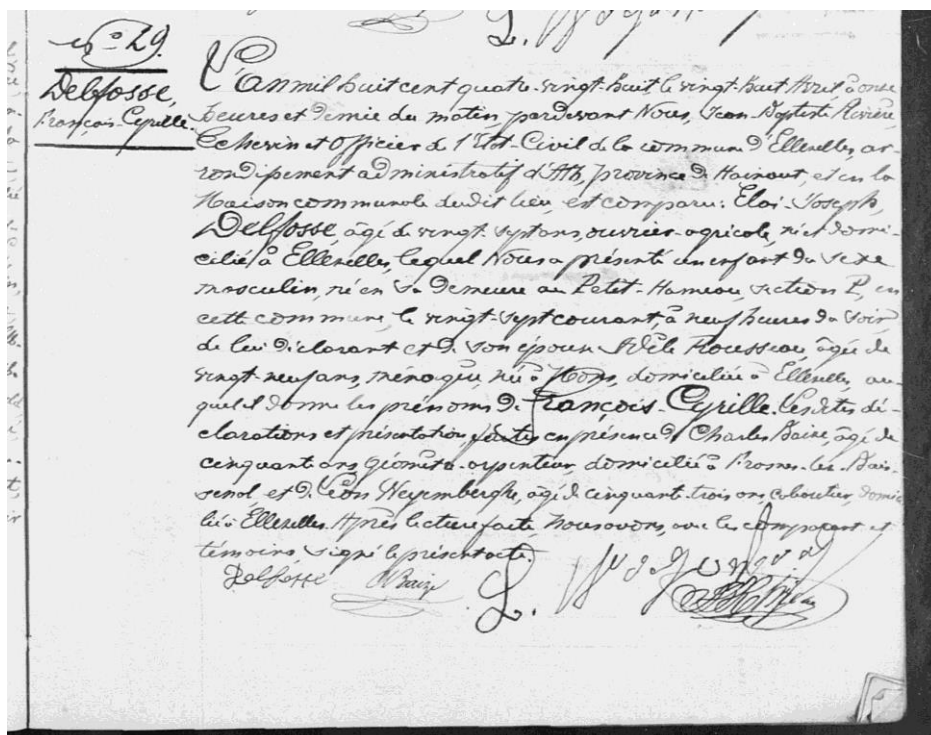 N° 29.
Delfosse,
François-Cyrille.
L'An mil huit cent quatre-vingt-huit le vingt-huit Avril à onze
heures et demie du matin, pardevant Nous, Jean-Baptiste Rivière,
Echevin et Officier de l'Etat-Civil de la commune d'Ellezelles, ar-
rondissement administratif d'Ath, province de Hainaut, et en la
Maison communale dudit lieu, est comparu: Eloi-Joseph,
Delfosse, âgé de vingt-sept ans, ouvrier-agricole, né et domi-
cilié à Ellezelles, lequel Nous a présenté un enfant du sexe
masculin, né en sa demeure au Petit-Hameau, section P, en
cette commune, le vingt-sept courant, à neuf heures du soir,
de lui déclarant et de son épouse Adèle Rousseau, âgée de
vingt-neuf ans, ménagère, née à domiciliée à Ellezelles, au-
quel il donne les prénoms de François-Cyrille. Lesdites dé-
clarations et présentation, faites en présence de Charles Baize, âgé de
cinquante ans, géomètre-arpenteur, domicilié à Frasnes-lez-Buis-
senal, et de Léon Weyemberghe, âgé de cinquante-trois ans, domici
lié à Ellezelles. Après lecture faite, Nous avons, avec les comparant et
témoins signé le présent acte.
Delfosse Baize L.